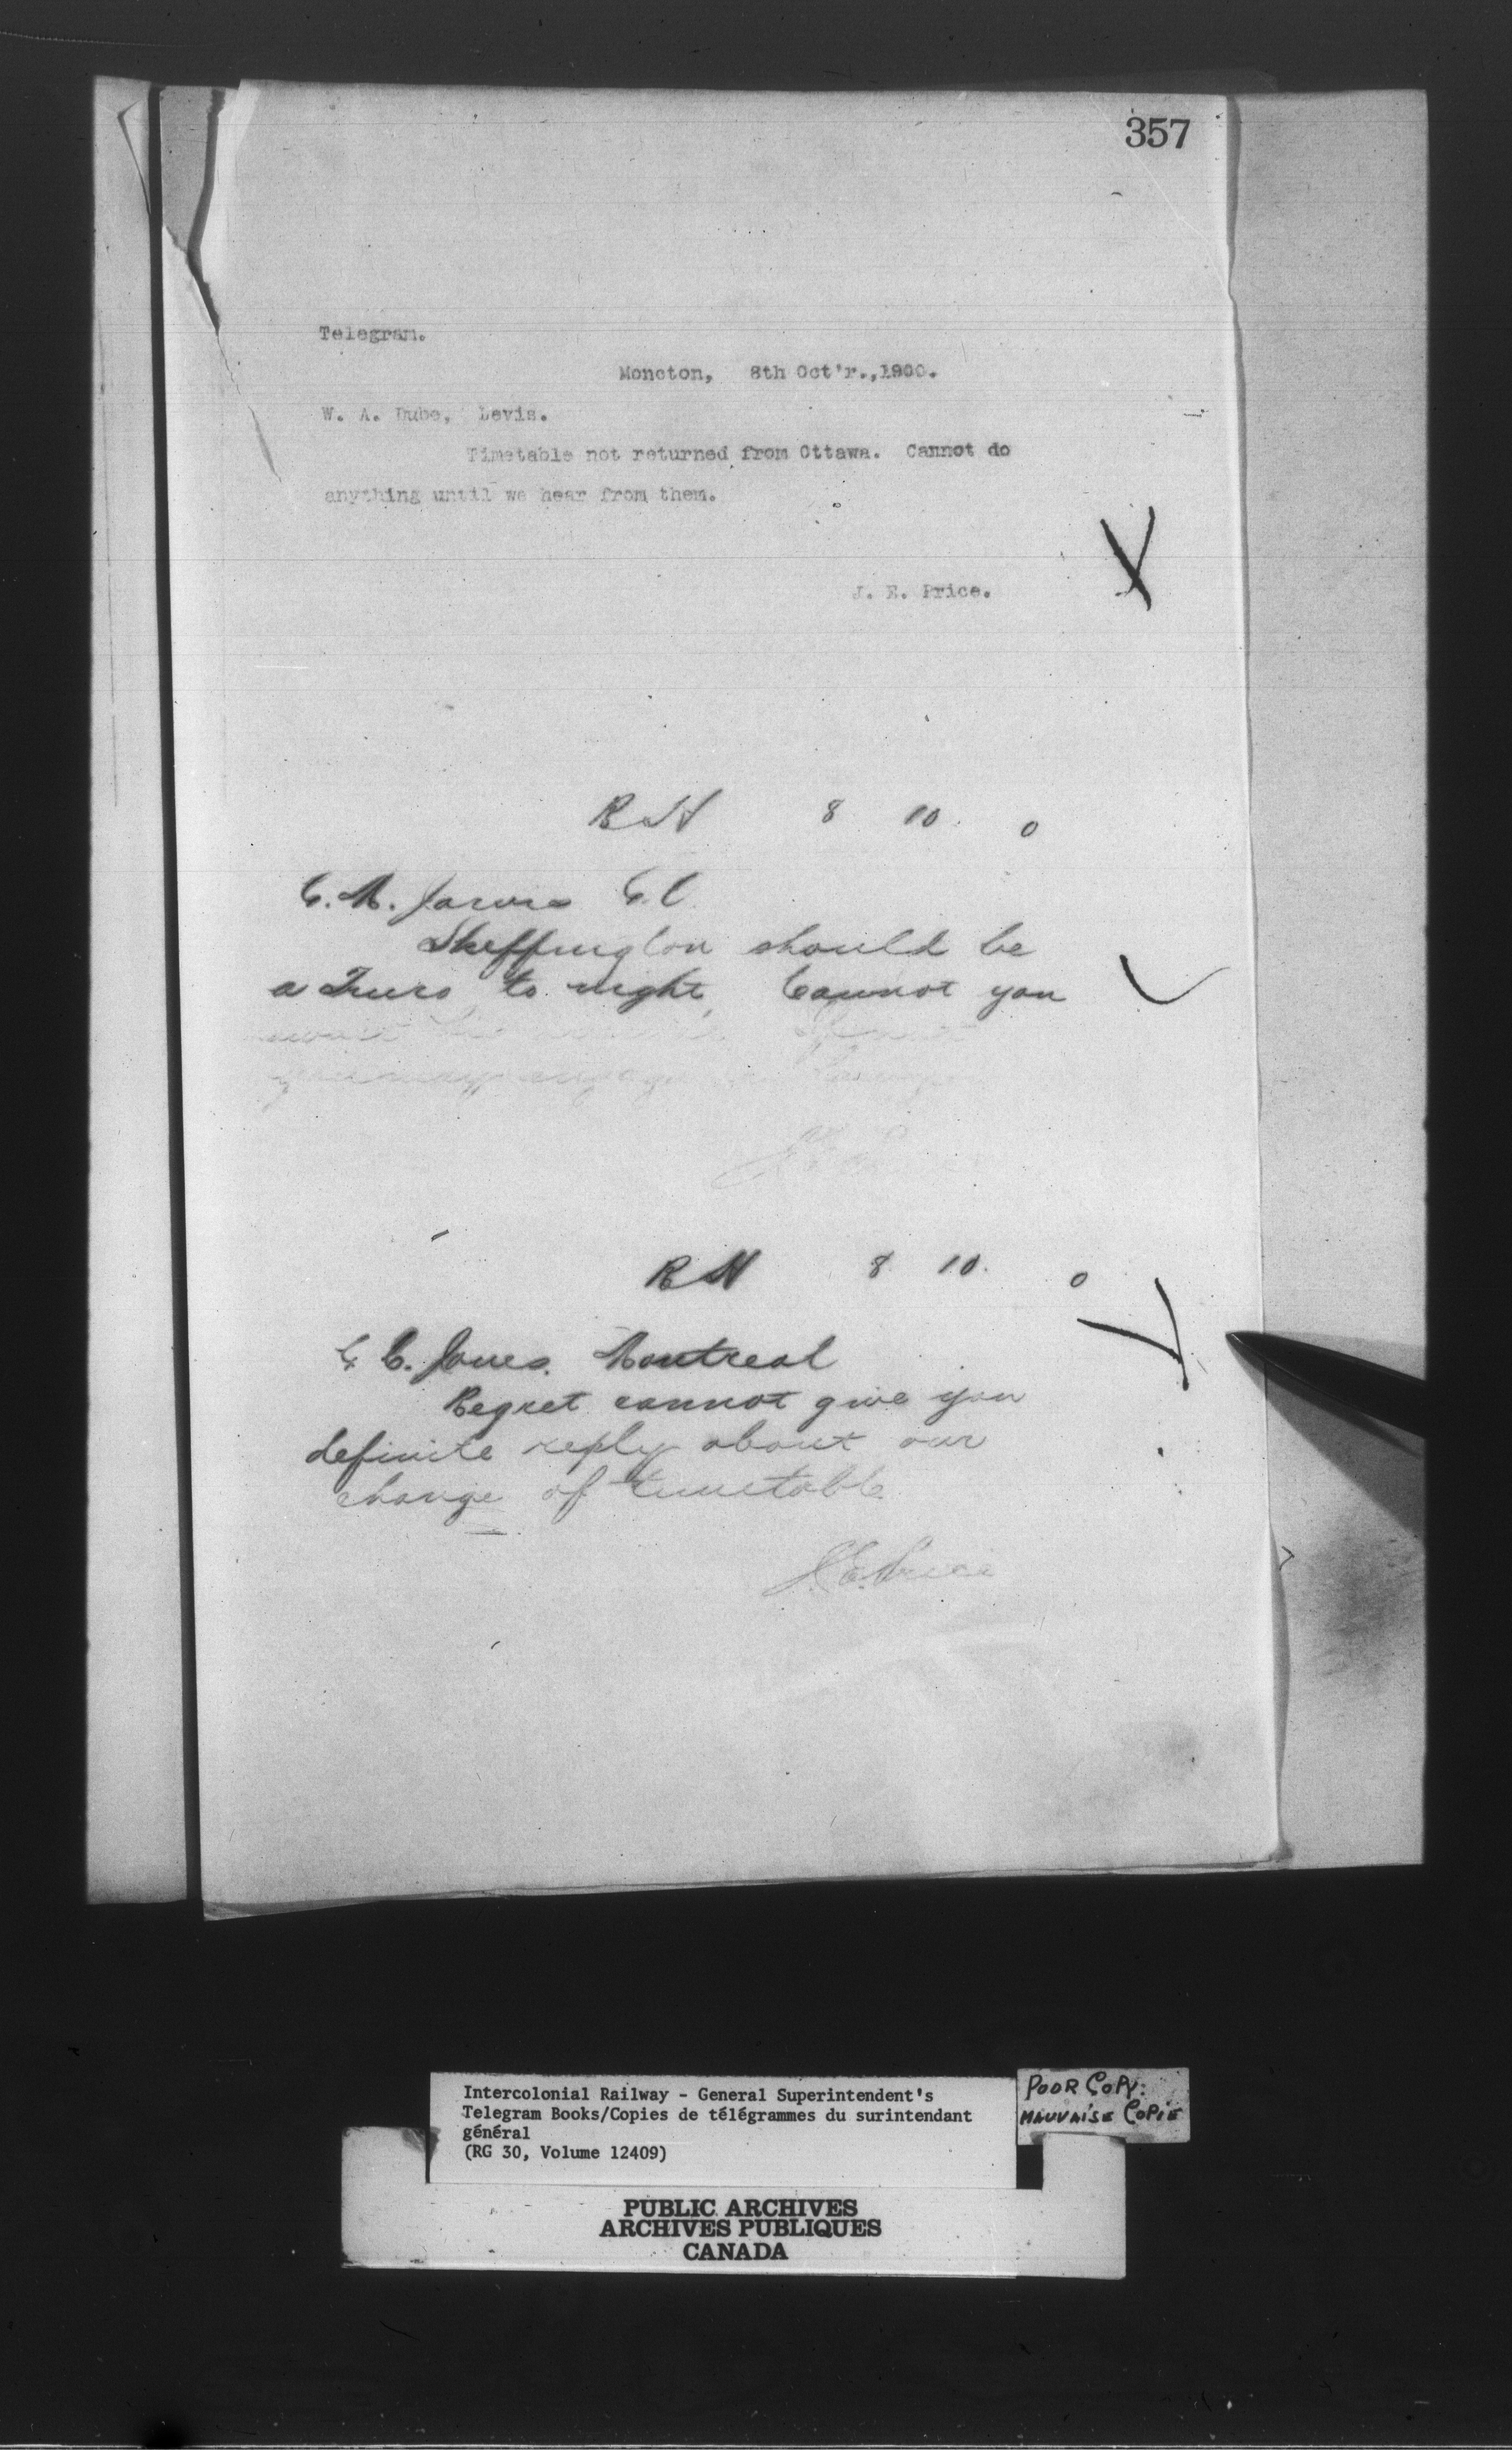 357
Telegram.
Moncton, 8th Oct'r.,1900.
W. A. Dube, Levis.
Timetable not returned from Ottawa. Cannot do
anything until we hear from them.
J. E. Price.
8 10 0
Skeffington should be
a Truro to night, Cannot you
8 10. 0
Jones. Montreal
Regret cannot give you
definite reply about our
change of timetable
J. E. Price
Intercolonial Railway - General Superintendent's
Telegram Books/Copies de télégrammes du surintendant
général
(RG 30, Volume 12409)
POOR COPY:
MAUVAISE COPIE
PUBLIC ARCHIVES
ARCHIVES PUBLIQUES
CANADA